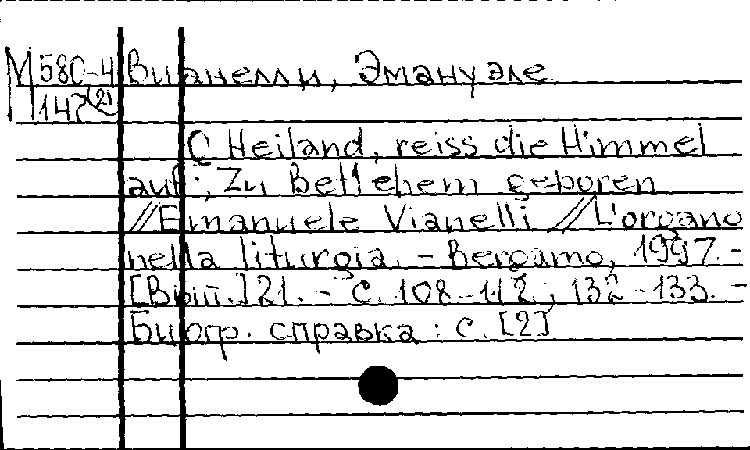 М 580-4 Вианелли, Эмануэле
147(2)
O Heiland, reiss die Himmel
auf; Zu Betlehem geboren
// Emanuele Vianelli // L'organo
nella liturgia. - Bergamo, 1997. -
[Вып.] 21. - С. 108-112, 132-133. -
Биогр. справка: с. [2]